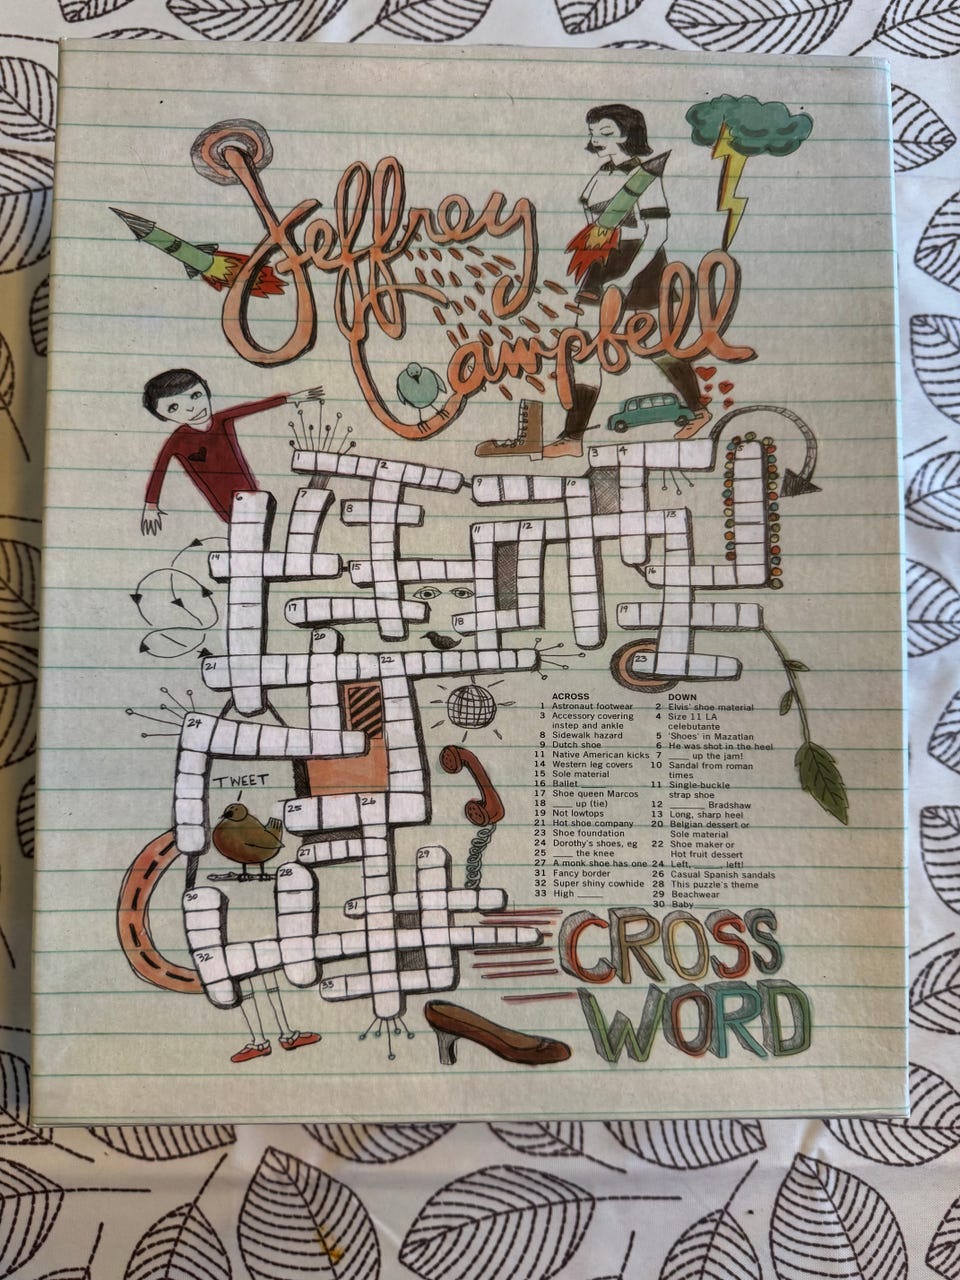 Jeffrey
Campbell
TWEET
ACROSS
1 Astronaut footwear
3 Accessory covering
instep and ankle
8 Sidewalk hazard
9 Dutch shoe
11 Native American kicks
14 Western leg covers
15 Sole material
16 Ballet ____
17 Shoe queen Marcos
18 ____ up (tie)
19 Not lowtops
21 Hot shoe company
23 Shoe foundation
24 Dorothy's shoes, eg
25 ____ the knee
27 A monk shoe has one
31 Fancy border
32 Super shiny cowhide
33 High ____
DOWN
2 Elvis' shoe material
4 Size 11 LA
celebutante
5 'Shoes' in Mazatlan
6 He was shot in the heel
7 ____ up the jam!
10 Sandal from roman
times
11 Single-buckle
strap shoe
12 ____ Bradshaw
13 Long, sharp heel
20 Belgian dessert or
Sole material
22 Shoe maker or
Hot fruit dessert
24 Left, ____, left!
26 Casual Spanish sandals
28 This puzzle's theme
29 Beachwear
30 Baby ____
CROSS
WORD